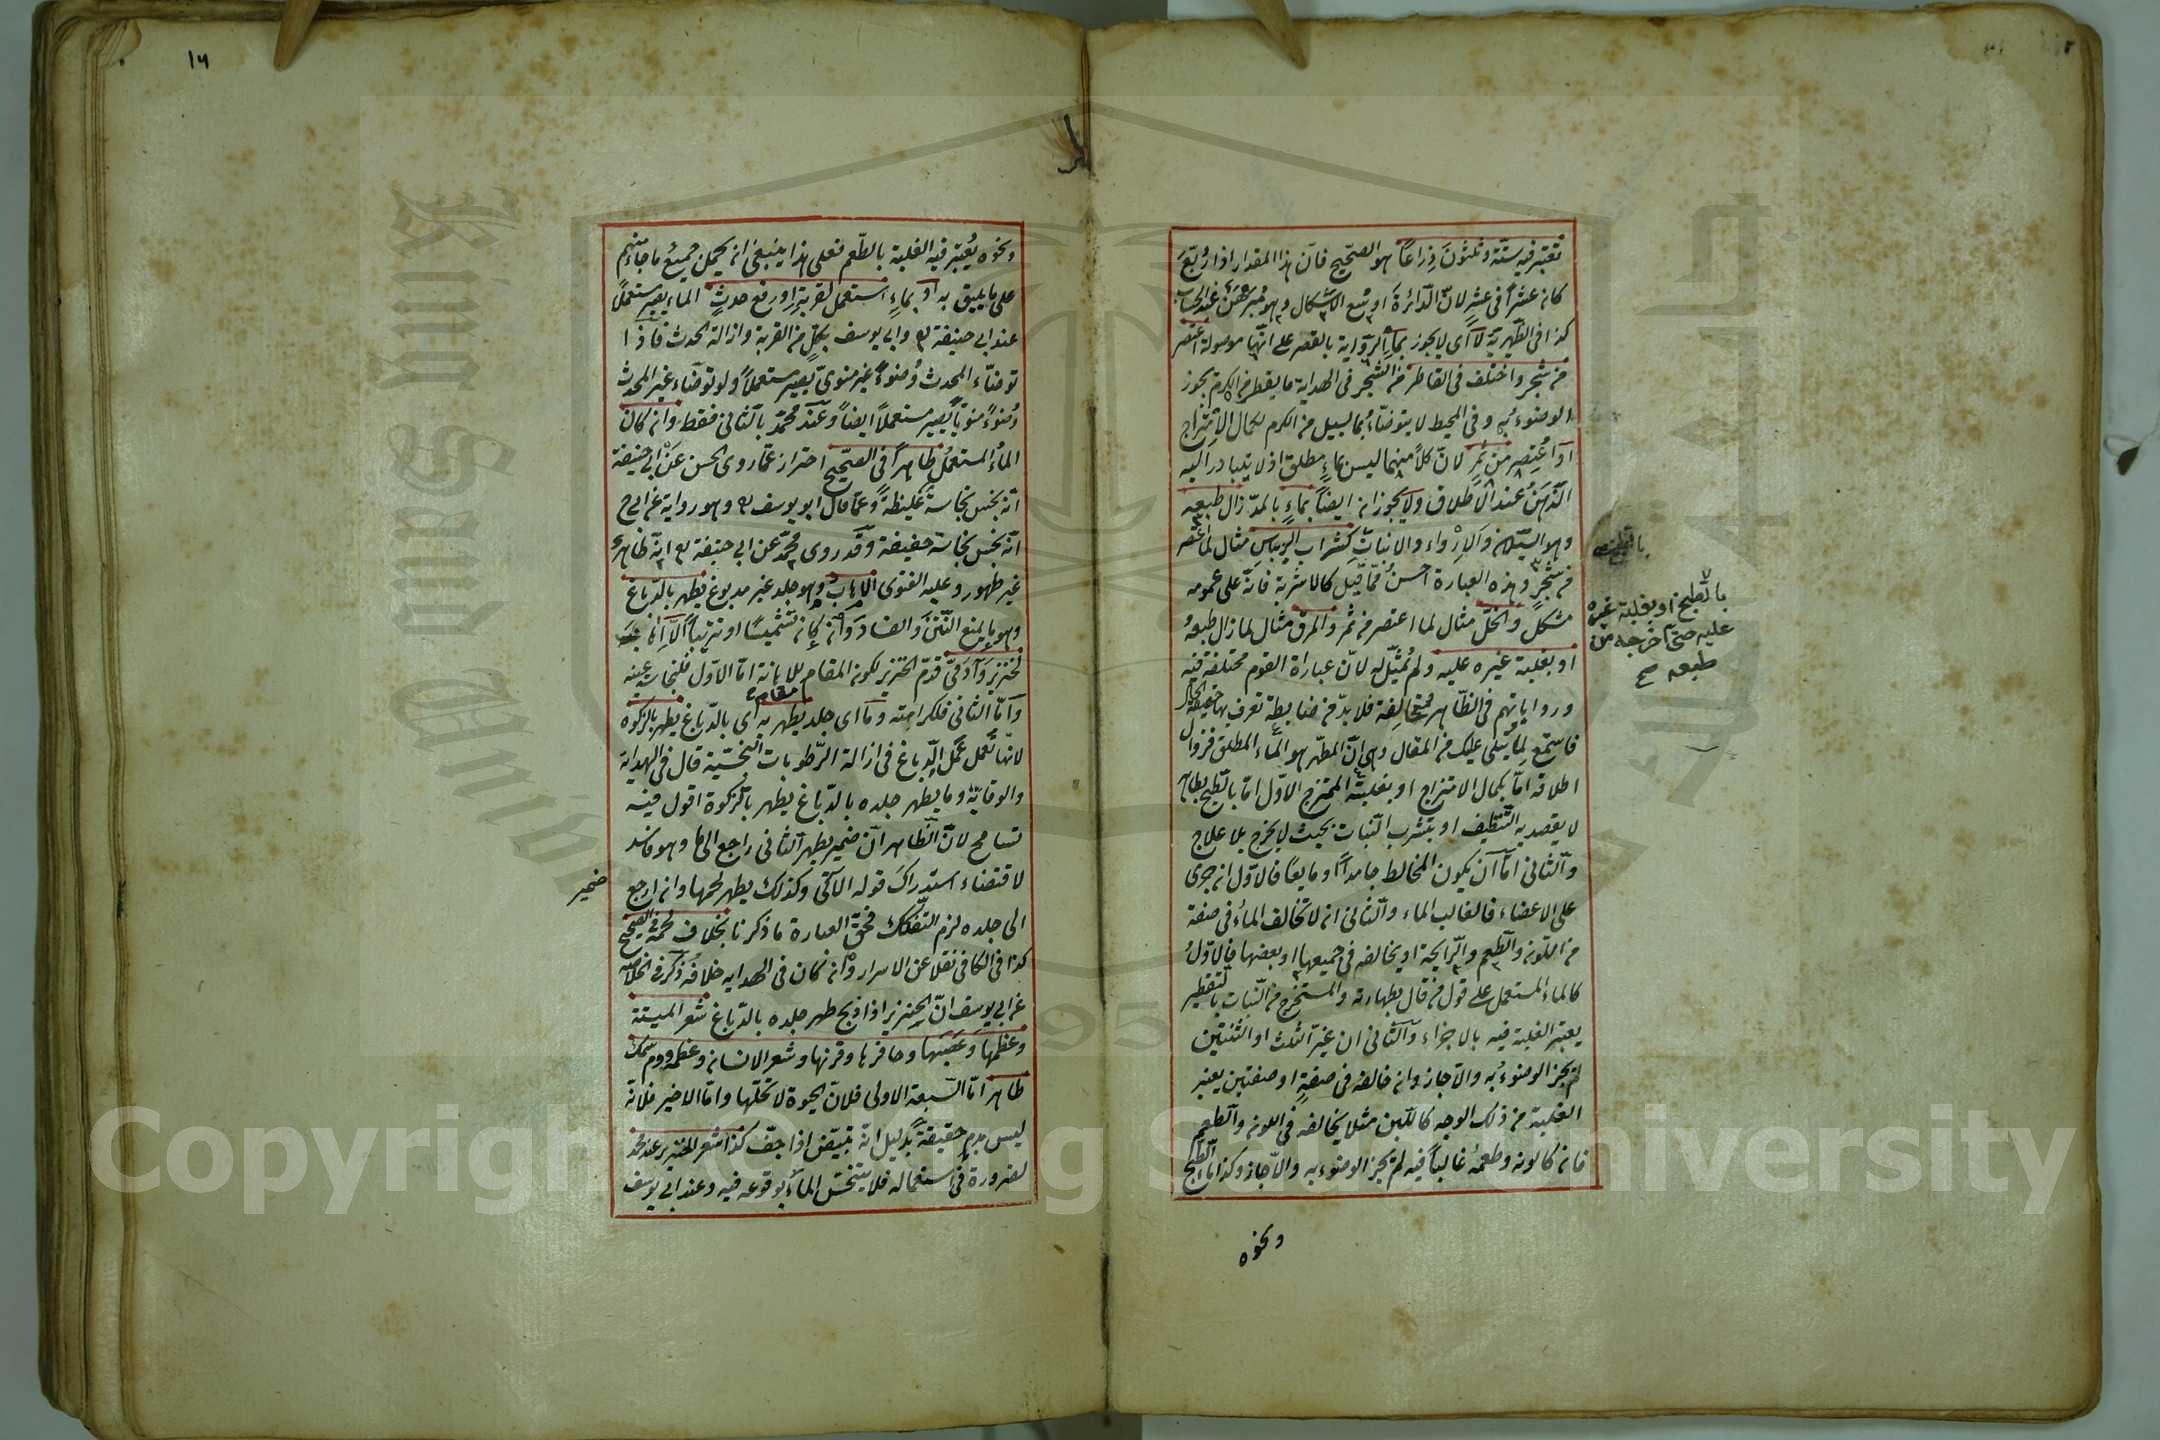 تعتبر فيه ستة وثلثون ذراعا هو الصحيح فان هذا المقدار اذا ربع
كان عشرا في عشر لان الدائرة اوسع الاشكال وهو مبرهن عند الحساب
كذا في الظهيرية لا اى لا يجوز بماء الرواية بالقصر على انها موصولة اعتصر
من شجر واختلف في القاطر من الشجر في الهداية ما يقطر من الكرم يجوز
الوضوء به وفي المحيط لا يتوضأ بما يسيل من الكرم لكمال الامتزاج
او اعتصر من ثمر لان كلا منهما ليس بماء مطلق اذ لا يتبادر اليه
الذهن عند الاطلاق ولا يجوز ايضا بماء بالمد زال طبعه
وهو السيلان والارواء والانبات كشراب الريباس مثال لما اعتصر
من شجر وهذه العبارة احسن مما قيل كالاشربة فانه على عمومه
مشكل والخل مثال لما اعتصر من ثمر والمرق مثال لما زال طبعه
او بغلبة غيره عليه ولم يمثل له لان عبارات القوم مختلفة فيه
ورواياتهم في الظاهر متخالفة فلا بد من ضابطة تعرف بها حقيقة الحال
فاستمع لما يتلى عليك من المقال وهى ان المطهر هو الماء المطلق فزوال
اطلاقه اما بكمال الامتزاج او بغلبة الممتزج الاول اما بالطبخ بطاهر
لا يقصد به التنظيف او بتشرب النبات بحيث لا يخرج بلا علاج
والثانى اما ان يكون المخالط جامدا او مايعا فالاول ان جرى
على الاعضاء فالغالب الماء والثانى ان لا تخالف الماء في صفة
من اللون والطعم والرايحة او يخالفه في جميعها او بعضها فالاول
كالماء المستعمل على قول من قال بطهارته والمستخرج من النبات بالتقطير
يعتبر الغلبة فيه بالاجزاء والثانى ان غير الثلث او الثنتين
لم يجز الوضوء به والا جاز وان خالفه في صفة او صفتين يعتبر
الغلبة من ذلك الوجه كاللبن مثلا يخالفه في اللون والطعم
فان كان لونه وطعمه غالبا فيه لم يجز الوضوء به والا جاز وكذا ماء البطيخ
ونحوه
بالطبخ او بغلبة غيره
عليه حتى اخرجه من
طبعه صح
١٦
ونحوه يعتبر فيه الغلبة بالطعم فعلى هذا ينبغى ان يحمل جميع ما جاء منهم
على ما يليق به او بماء استعمل لقربة او رفع حدث الماء يصير مستعملا
عند ابى حنيفة وابى يوسف بكل من القربة وازالة الحدث فاذا
توضاء المحدث وضوء غير منوى يصير مستعملا ولو توضاء غير المحدث
وضوء منويا يصير مستعملا ايضا وعند محمد بالثانى فقط وان كان
الماء المستعمل طاهرا في الصحيح احتراز عما روى الحسن عن ابى حنيفة
انه نجس نجاسة غليظة وعما قال ابو يوسف وهو رواية عن ابى ح
انه نجس نجاسة خفيفة وقد روى محمد عن ابى حنيفة انه طاهر
غير طهور وعليه الفتوى الاهاب وهو جلد غير مدبوغ يطهر بالدباغ
وهو ما يمنع النتن والفساد وان كان تشميسا او تتريبا الا اهاب
الخنزير وآدمى قدم الخنزير لكون المقام للاهانة اما الاول فلنجاسة عينه
واما الثانى فلكرامته وما اى جلد يطهر به اى بالدباغ يطهر بالزكوة
لانها تعمل عمل الدباغ في ازالة الرطوبات النجسة قال في الهداية
والوقاية وما يطهر جلده بالدباغ يطهر بالزكوة اقول فيه
تسامح لان الظاهر ان ضمير يطهر الثانى راجع الى ما وهو فاسد
لاقتضاء استدراك قوله الآتى وكذلك يطهر لحمها وان ارجع
ضمير
الى جلده لزم التفكك فحق العبارة ما ذكرنا بخلاف لحمه في الصحيح
كذا في الكافى نقلا عن الاسرار وان كان في الهداية خلافه ذكر في الخلاصة
عن ابى يوسف ان الخنزير اذا ذبح طهر جلده بالدباغ شعر الميتة
وعظمها وعصبها وحافرها وقرنها وشعر الانسان وعظمه ودم سمك
طاهر اما السبعة الاولى فلان الحيوة لا تحلها واما الاخير فلانه
ليس بدم حقيقة بدليل انه تبيض اذا جف كذا شعر الخنزير عند محمد
لضرورة في استعماله فلا يتنجس الماء بوقوعه فيه وعند ابى يوسف
Copyright © King Saud University